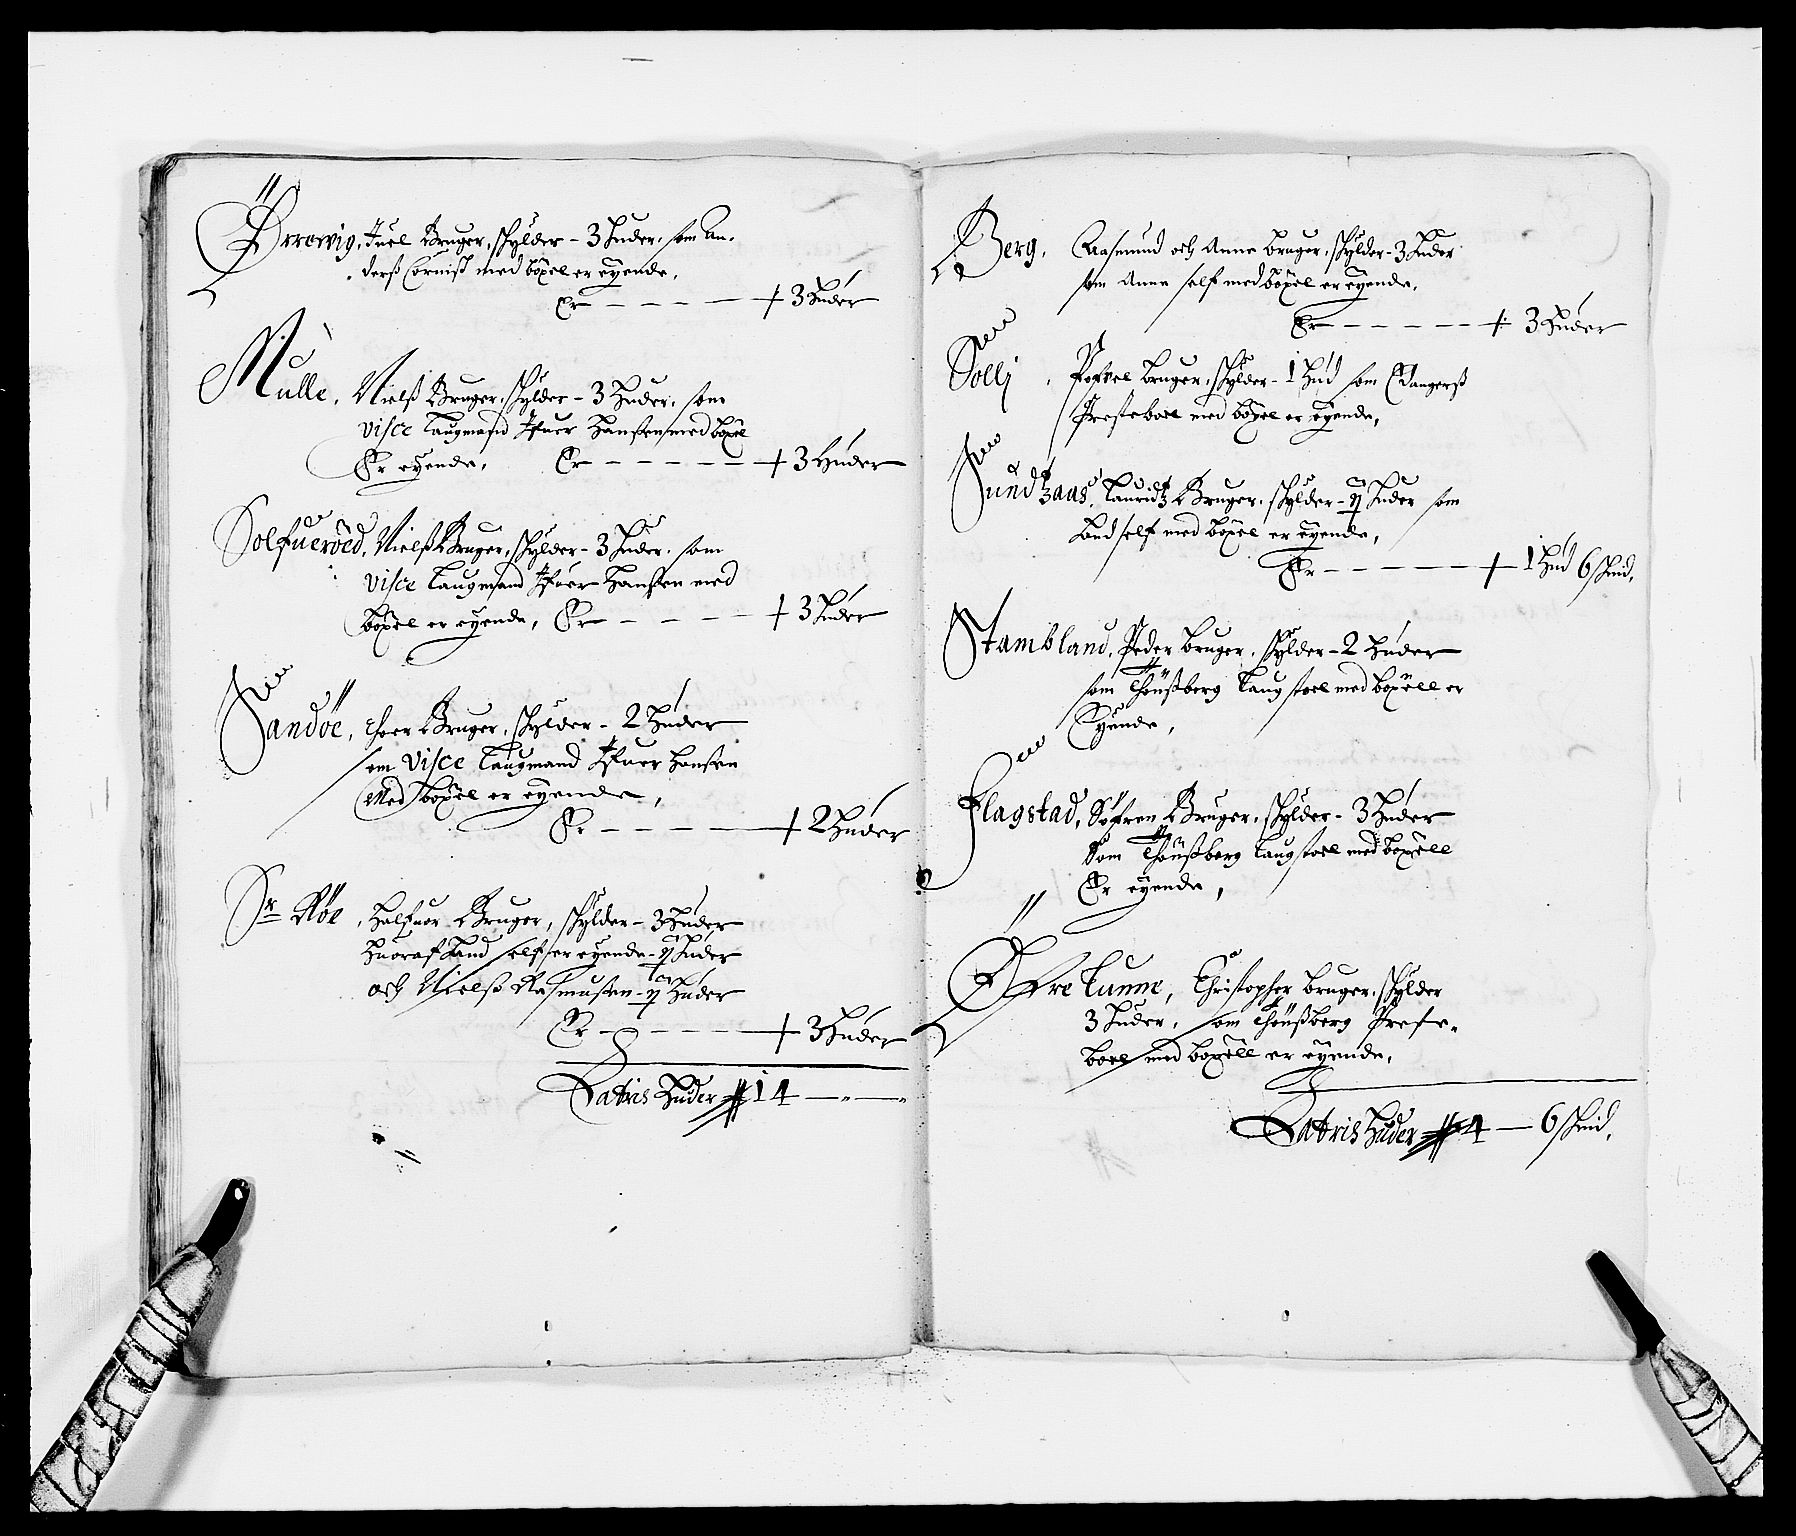 Ørrewig, Juel Bruger, skylder - 3 huder. som An-
derß Corniß med böxel er eyende,
Er - - - - - + 3 huder
Mulle, Nielß Bruger, skylder - 3 Huder, som
vice Laugmand Ifuer Hanßen med böxel
Er eyende, Er - - - - - + 3 Huder
Solfueröed, Nielß Bruger, skylder - 3 huder. som
vice Laugmand Ifuer Hanßen med
böxel er eyende, Er - - - - + 3 huder
Sandöe, Thoer Bruger, skylder - 2 Huder
som vice Laugmand Ifuer Hanßen
Med böxel er eyende,
Er - - - - + 2 huder
Sr Röe, Halfuor Bruger, skylder - 3 Huder
huoraf hand self er eyende - huder
och Nielß Rasmußen - huder
Er - - - - + 3 huder
Latris Huder 14 - " -
Berg, Aasmund och Anne bruger, skylder - 3 huder
som Anne self med böxel er eyende,
Er - - - - - + 3 huder
Sollj, Pofuel bruger, skylder - 1 hud som
Presteboel med böxel er eyende,
Sundtzaas, Lauridtz Bruger, skylder - huder som
hand self med böxel er eyende,
Er - - - - - + 1 hud 6 skind,
Stambland, Peder bruger, skylder - 2 huder
som Thönßberg Laugstoel med boxell er
Eyende,
Flagstad, Söfren Bruger, skylder - 3 huder
Som Thönßberg Laugstoel med boxell
Er eyende,
Øfre Lunne, Christopher bruger, skylder
3 huder, som Thönßberg Preste-
boel med boxell er eyende,
Latris huder 4 - 6 skind,